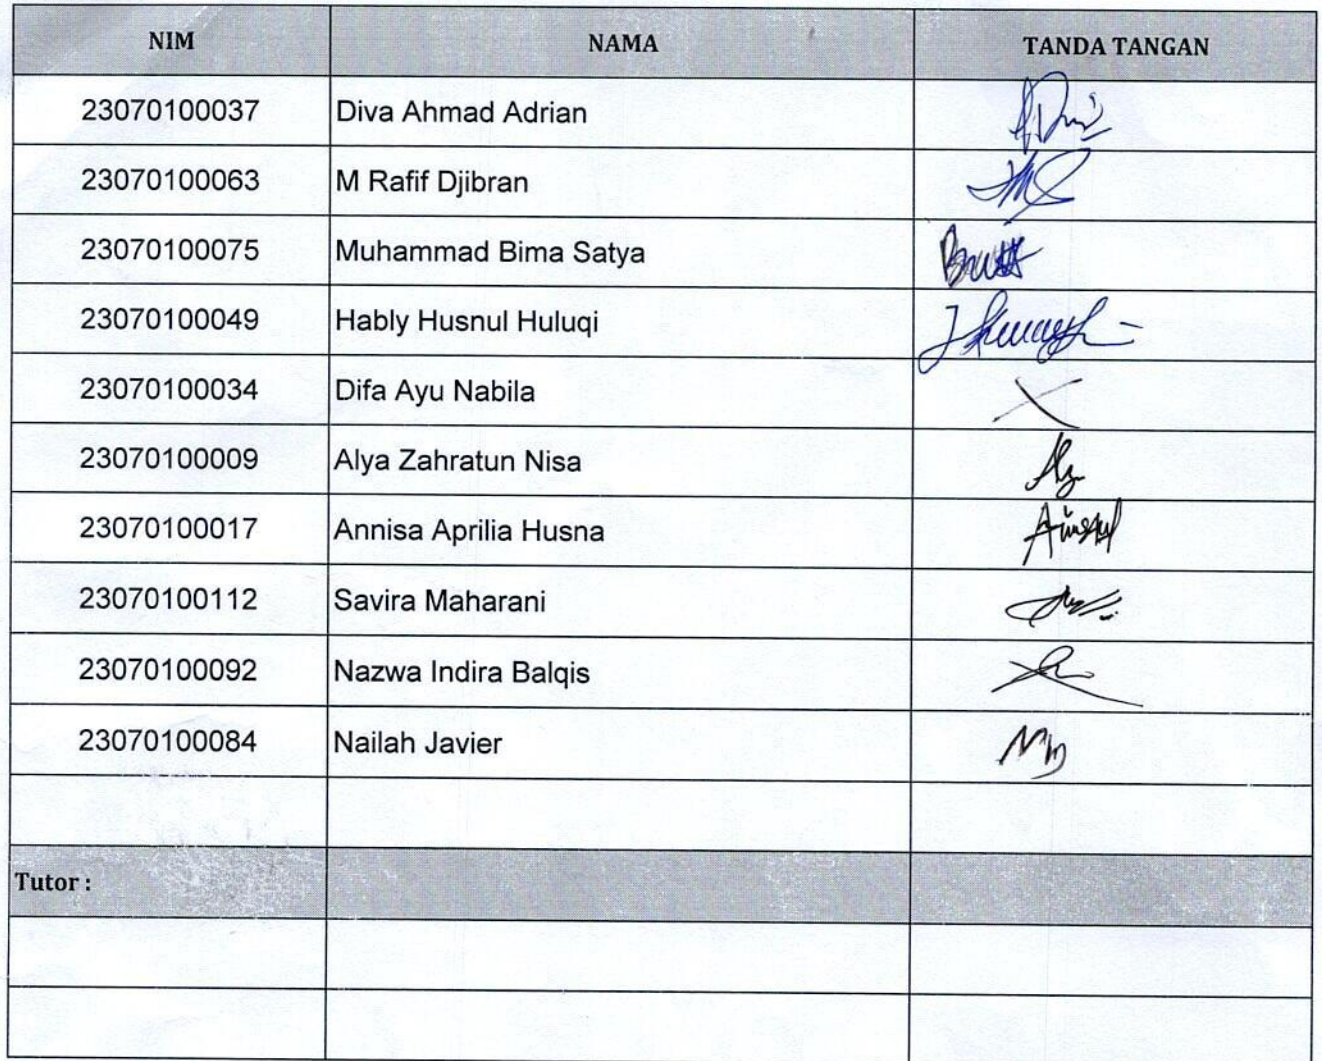 NIM NAMA TANDA TANGAN
23070100037 Diva Ahmad Adrian
23070100063 M Rafif Djibran
23070100075 Muhammad Bima Satya
23070100049 Hably Husnul Huluqi
23070100034 Difa Ayu Nabila
23070100009 Alya Zahratun Nisa
23070100017 Annisa Aprilia Husna
23070100112 Savira Maharani
23070100092 Nazwa Indira Balqis
23070100084 Nailah Javier
Tutor :